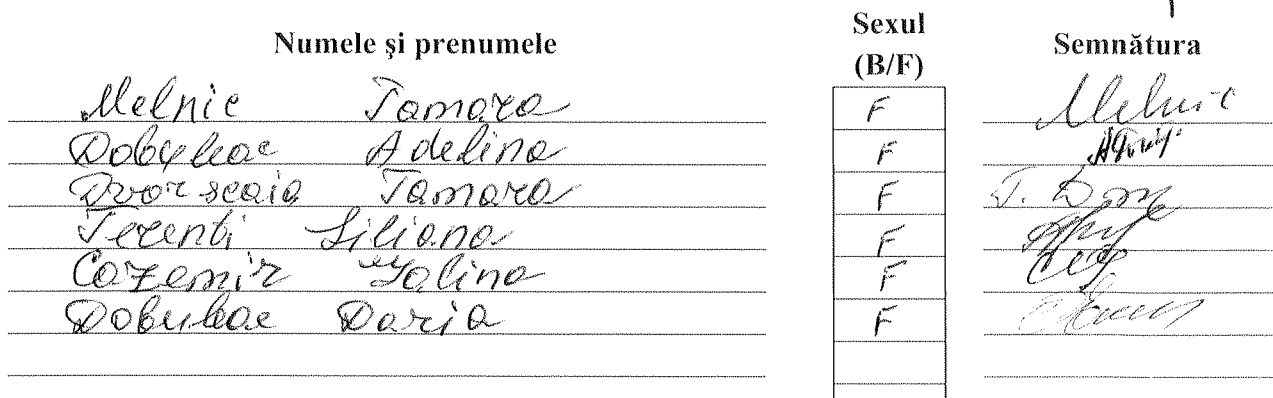 Numele şi prenumele Sexul (B/F) Semnătura
Melnic Tamara F Melnic
Dobuleac Adelina F
Dvorscaia Tamara F
Terenti Liliana F
Cazemir Galina F
Dobuleac Daria F